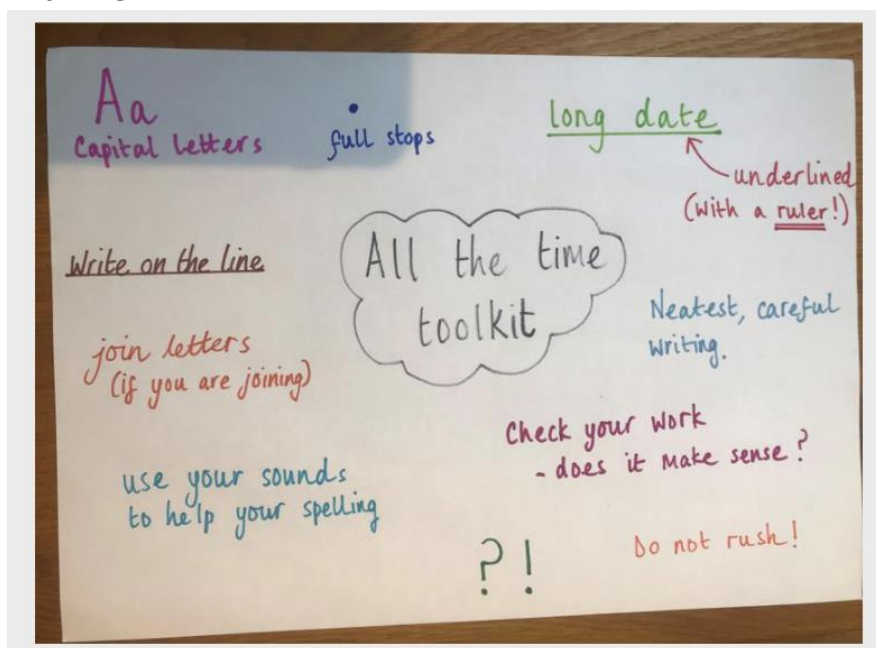 Aa
Capital letters
.
full stops
long date
underlined
(with a ruler!)
Write on the line
All the time
toolkit
Neatest, careful
writing.
join letters
(if you are joining)
Check your work
- does it make sense?
use your sounds
to help your spelling
Do not rush!
?!